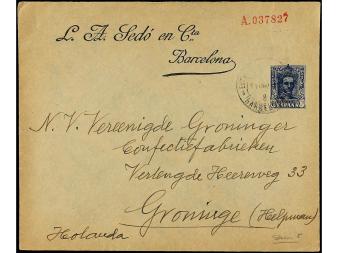 A.037827
L. A. Sedó en Cta
Barcelona
ESPAÑA
N. V. Vereenigde Groninger
Confectiefabrieken
Verlengde Heereweg 33
Groninge (Helpman)
Holanda